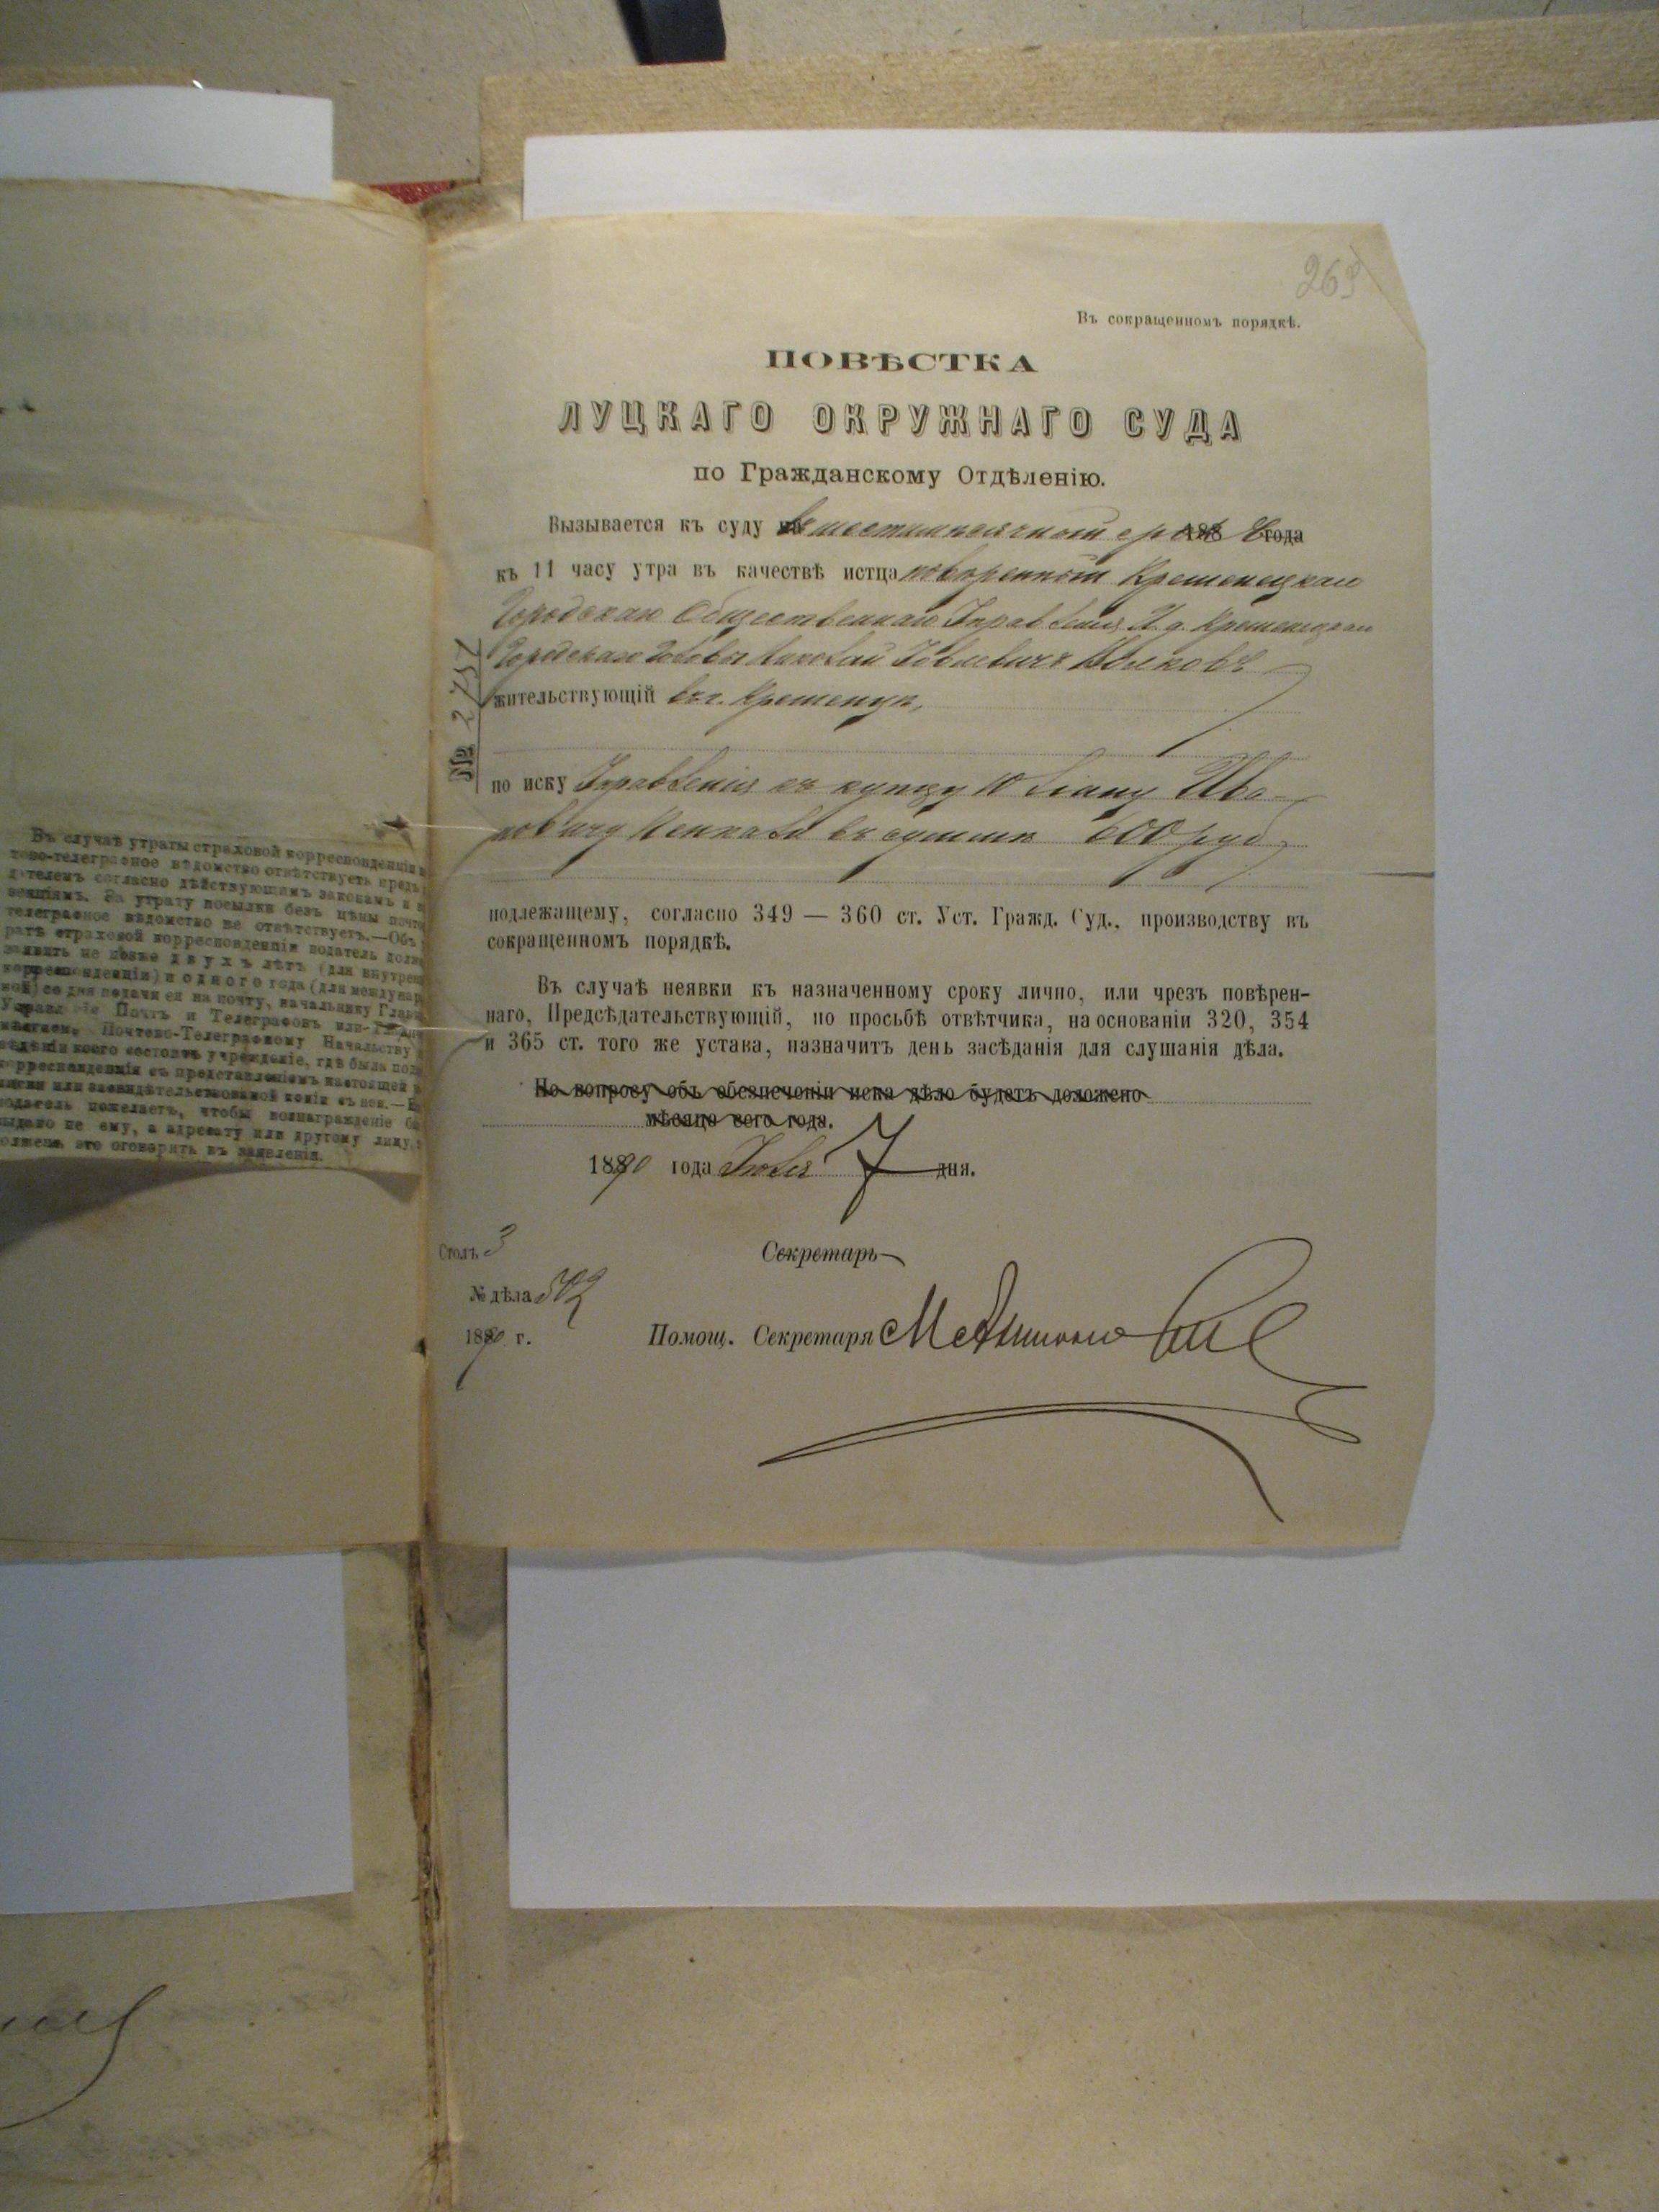 Въ случаѣ утраты страховой корреспонденціи
тово-телеграфное вѣдомство отвѣтствуетъ предъ
дателемъ согласно дѣйствующимъ законамъ и
венціямъ. За утрату посылки безъ цѣны почто
телеграфное вѣдомство не отвѣтствуетъ.—Объ
ратѣ страховой корреспонденціи податель долж
заявить не позже двухъ лѣтъ (для внутрен
корреспонденціи) и одного года (для междунар
ной) со дня подачи ея на почту, начальнику Главн
Управленіе Почтъ и Телеграфовъ или
Почтово-Телеграфному Начальству
вѣдѣніи коего состоитъ учрежденіе, гдѣ была под
корреспонденція съ представленіемъ настоящей
писки или засвидѣтельствованной копіи съ нея.—
податель пожелаетъ, чтобы вознагражденіе
выдано не ему, а адресату или другому лицу,
долженъ это оговорить въ заявленіи.
269
Въ сокращенномъ порядкѣ.
ПОВѢСТКА
ЛУЦКАГО ОКРУЖНАГО СУДА
по Гражданскому Отдѣленію.
Вызывается къ суду въ шестимѣсячный срокъ года
къ 11 часу утра въ качествѣ истца повѣренный Кременецкаго
Городскаго Общественнаго Управленія И. д. Кременецкаго
Городскаго Головы Николай Волковъ
жительствующій въ г. Кременцѣ,
№ 2757
по иску Управленія къ купцу Юліану Ива-
новичу въ суммѣ 600 руб.
подлежащему, согласно 349 — 360 ст. Уст. Гражд. Суд., производству въ
сокращенномъ порядкѣ.
Въ случаѣ неявки къ назначенному сроку лично, или чрезъ повѣрен-
наго, Предсѣдательствующій, по просьбѣ отвѣтчика, на основаніи 320, 354
и 365 ст. того же устава, назначитъ день засѣданія для слушанія дѣла.
По вопросу объ обезпеченіи иска дѣло будетъ доложено
мѣсяца сего года.
1890 года Іюля 7 дня.
Столъ 3
Секретарь
№ дѣла 502
1890 г.
Помощ. Секретаря